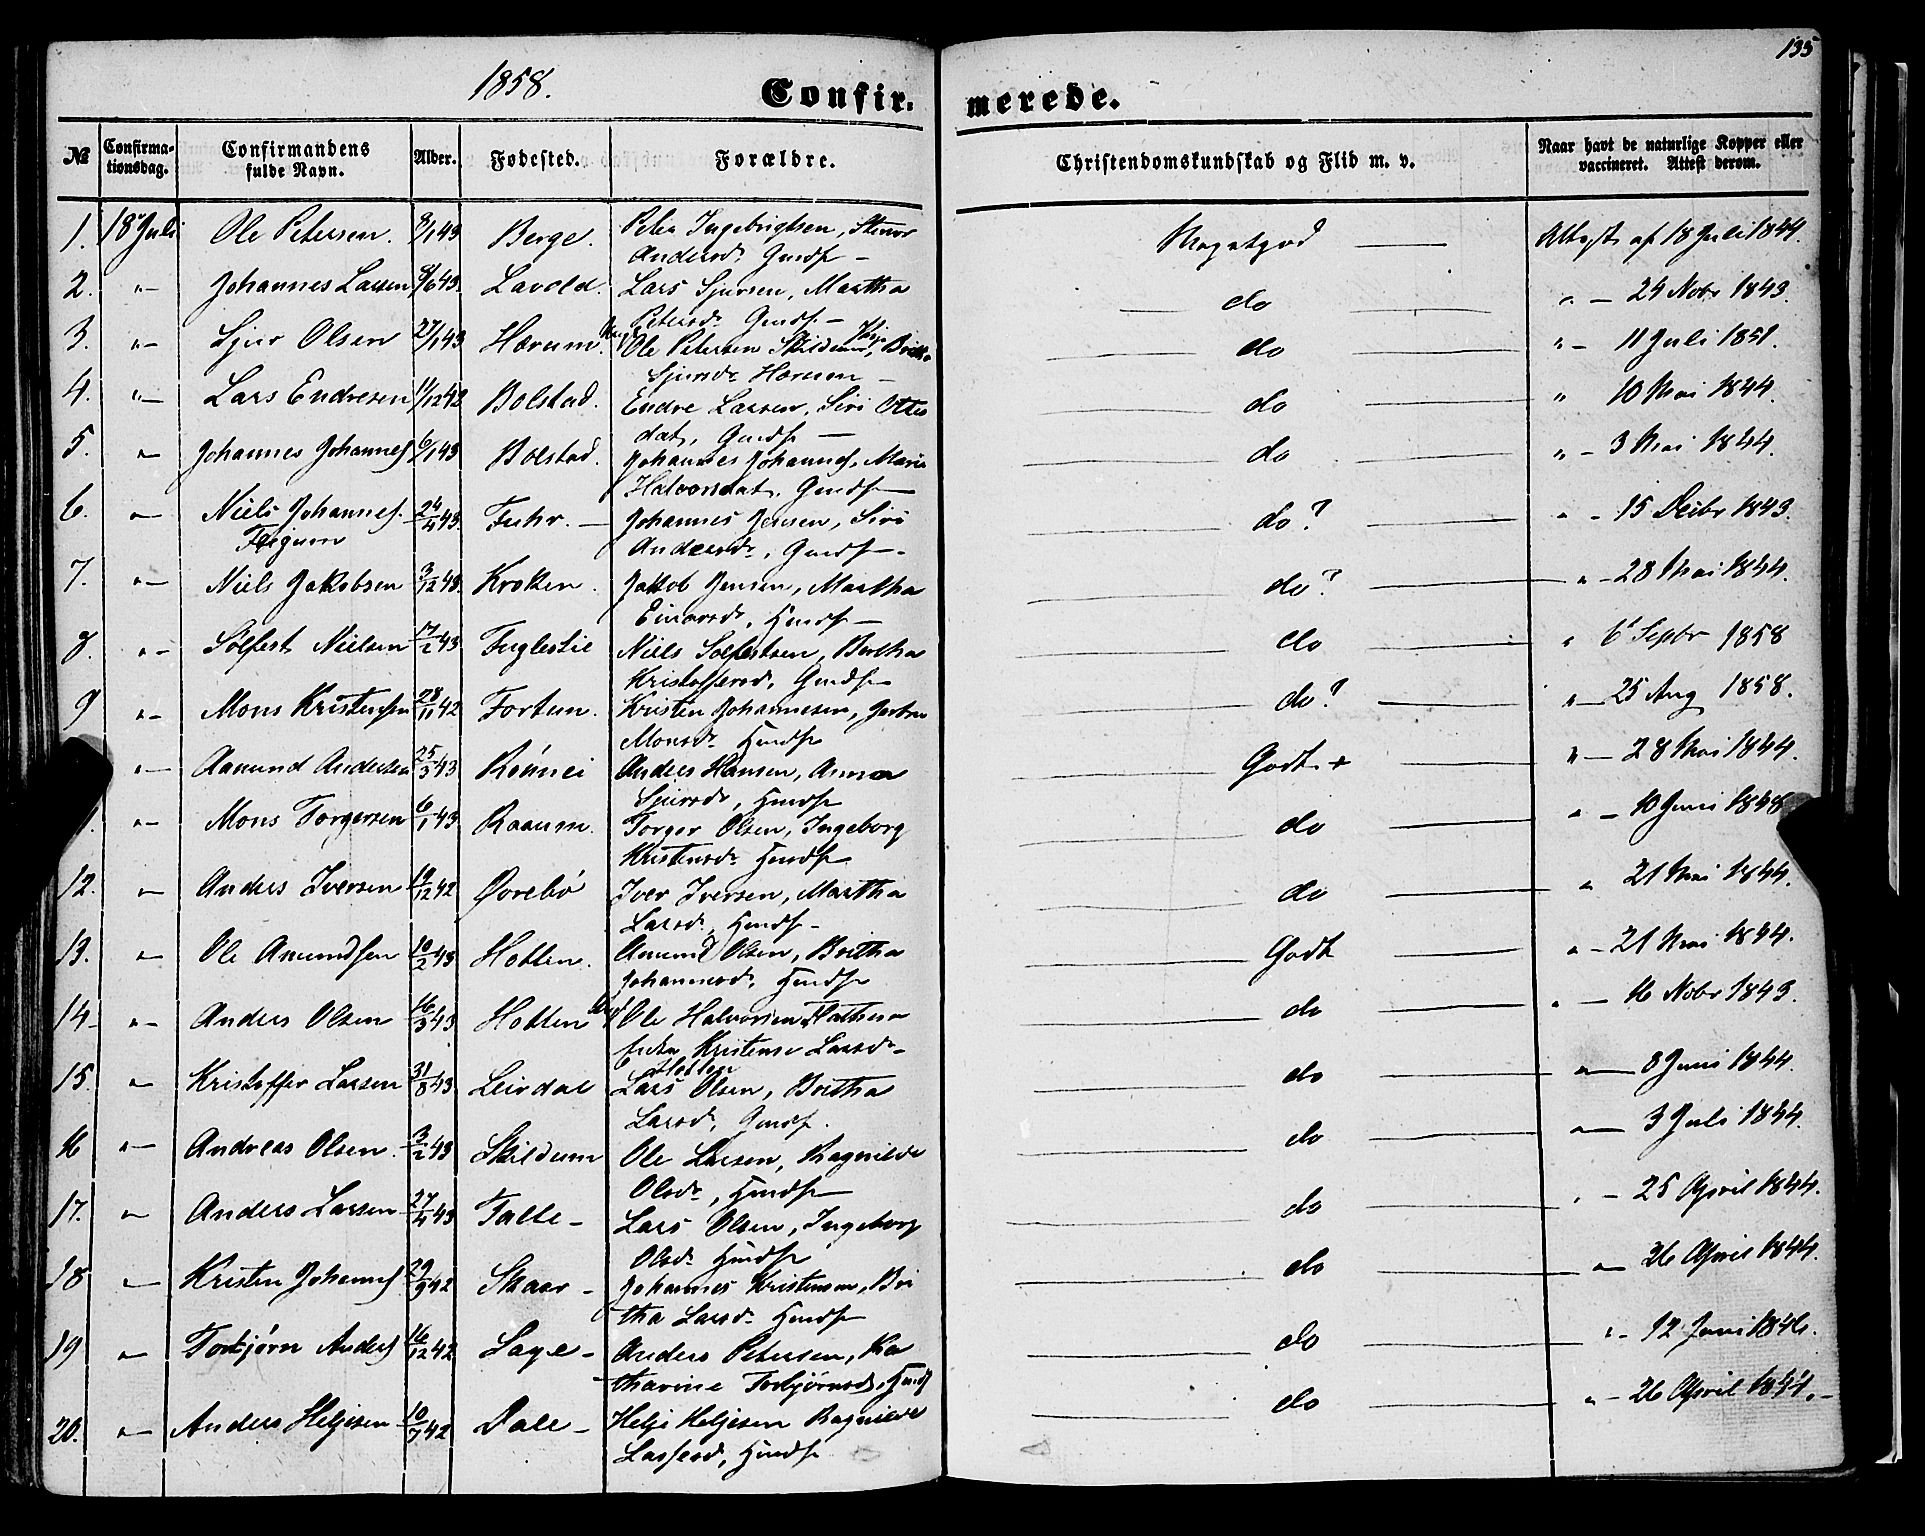 135
1858.
Confir. merede.
№ Confirma-tionsdag. Confirmandens fulde Navn. Alder. Fødested. Forældre. Christendomskundskab og Flid m. v. Naar havt de naturlige Kopper eller vaccineret. Attest derom.
1. 18 Juli Ole Petersen. 8/1 43 Berge. Peter Ingebrigtsen, Andersd. Gmdf — Megetgod — Attest af 18 Juli 1844.
2. "— Johannes Larsen 8/6 43. Lavold. Lars Sjursen, Martha Petersd. Gmdf — do — "— 24 Nobr 1843.
3. "— Sjur Olsen 27/1 43 Hærum. Ole Petersen Skildum, Britha Sjursd. Hærum — do — "— 11 Juli 1851.
4. "— Lars Endresen 11/12 42 Bolstad. Endre Larsen, Siri Ottesdat, Gmdf — do — " 10 Mai 1844.
5. "— Johannes Johannesf 6/1 43 Bolstad. Johannes Johannesf, Maria Halvorsdat. Gmdf — do — "— 3 Mai 1844.
6. "— Niels Johannesf. Fægum 24/4 43. Fuhr. — Johannes Jensen, Siri Andersd., Gmdf —. do? — "— 15 Decbr 1843.
7. "— Niels Jakobsen 3/12 43. Kroken. Jakob Jensen, Martha Einarsd., Hmdf — do? — "— 28 Mai 1844.
8. "— Sølfest Nielsen 17/2 43 Fuglestie Niels Solfestsen, Britha Kristoffersd. Gmdf — do — " 6 Septbr 1858
9 "— Mons Kristensen 28/11 42 Fortun. Kristen Johannesen, Monsd. Hmdf do? — "— 25 Aug 1858.
"— Aamund Andersen 25/3 43 Rønnei Anders Hansen, Anna Sjursd., Hmdf Godt + — "— 28 Mai 1844.
"— Mons Torgersen 6/1 43 Raaum. Torger Olsen, Ingeborg Kristensd. Hmdf do — "— 10 Juni 1848
12. "— Anders Iversen 19/12 42 Øvrebø Iver Iversen, Martha Larsd., Hmdf — do — " 21 Mai 1844.
13. "— Ole Amundsen 10/2 43 Hotten. Amund Olsen, Britha Johannesd., Hmdf Godt — "— 21 Mai 1844.
14— "— Anders Olsen 16/3 43 Hotten Ole Halvorsen Kristense Larsd. Hotten do — "— 16 Nobr 1843.
15. "— Kristoffer Larsen 31/8 43. Leirdal Lars Olsen, Britha Larsd., Gmdf. do — "— 8 Juni 1844.
16 "— Andreas Olsen. 3/2 43 Skildum Ole Larsen, Ragnilde Olsd., Hmdf do — "— 3 Juli 1844.
17. "— Anders Larsen 27/4 43 Talle — Lars Olsen, Ingeborg Olsd. Hmdf do — "— 25 April 1844.
18 "— Kristen Johannesf 29/9 42 Skaar — Johannes Kristensen, Britha Larsd. Hmdf do — "— 26 April 1844.
19 "— Torbjørn Andersf 16/12 42 Sage — Anders Petersen, Katharine Torbjørnsd., Hmdf do — "— 12 Juni 1846.
20. "— Anders Heljesen 10/7 42 Dale — Helje Heljesen Ragnilde Lassesd., Hmdf do — "— 26 April 1844. —